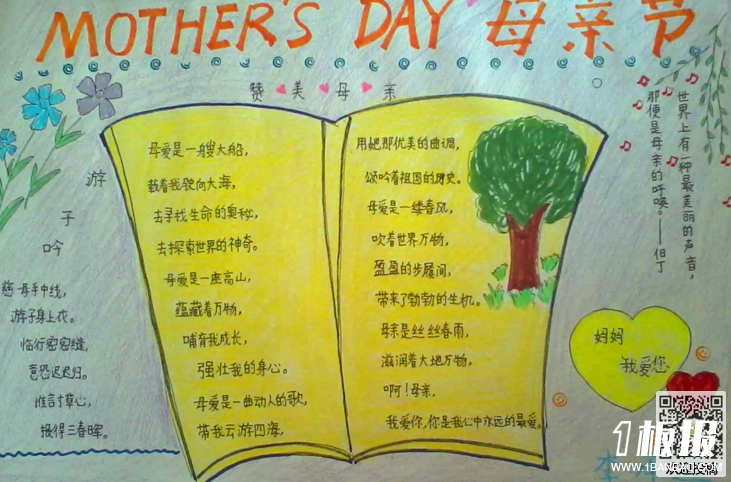 MOTHER'S DAY 母亲节
赞美母亲
游子吟
慈母手中线，
游子身上衣。
临行密密缝，
意恐迟迟归。
谁言寸草心，
报得三春晖。
母爱是一艘大船，
载着我驶向大海，
去寻找生命的奥秘，
去探索世界的神奇。
母爱是一座高山，
蕴藏着万物，
哺育我成长，
强壮我的身心。
母爱是一曲动人的歌，
带我云游四海，
用她那优美的曲调，
颂吟着祖国的历史。
母爱是一缕春风，
吹着世界万物，
盈盈的步履间，
带来了勃勃的生机。
母亲是丝丝春雨，
滋润着大地万物，
啊！母亲，
我爱你，你是我心中永远的最爱。
世界上有一种最美丽的声音，
那便是母亲的呼唤。——但丁
妈妈
我爱您
1板报
WWW.1BANBAO.COM